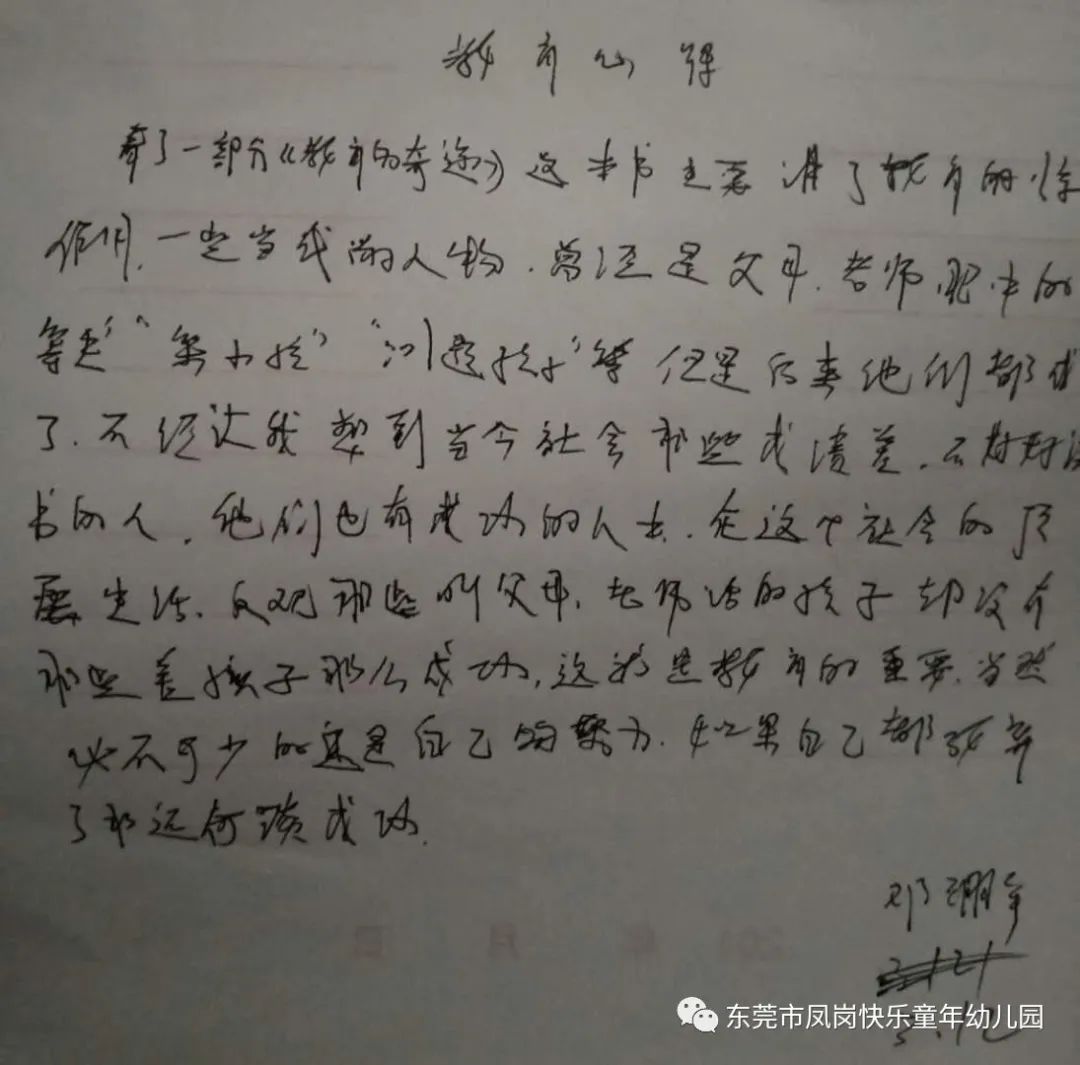 教育心得
看了一部分《教育的奇迹》这本书主要讲了教育的
作用,一些当代 的人物,曾经是父母,老师眼中的
"笨小孩""问题孩子"等 但是后来他们都成
了,不经让我想到当今社会那些成绩差,不好好读
书的人,他们也有成功的人士,在这个社会的顶
层生活,反观那些听父母,老师话的孩子却没有
那些差孩子那么成功,这就是教育的重要,当然
必不可少的还是自己的努力,如果自己都放弃
了那还何谈成功.
邓
东莞市凤岗快乐童年幼儿园